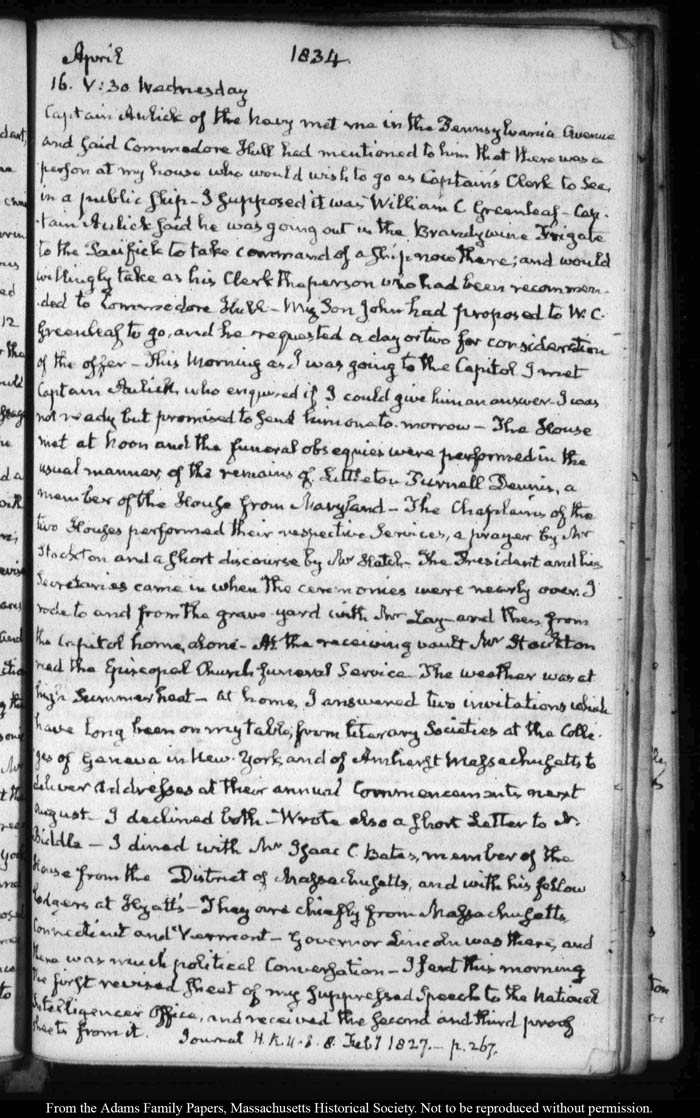 April 1834.
16. V:30 Wednesday
Captain Aulick of the Navy met me in the Pennsylvania Avenue
and said Commodore Hull had mentioned to him that there was a
person at my house who would wish to go as Captain's Clerk to Sea,
in a public Ship – I supposed it was William C Greenleaf – Cap-
-tain Aulick said he was going out in the Brandywine Frigate
to the Pacifick to take command of a Ship now there; and would
willingly take as his Clerk the person who had been recommen-
-ded to Commodore Hull – My Son John had proposed to W. C.
Greenleaf to go, and he requested a day or two for consideration
of the offer – This Morning as I was going to the Capitol I met
Captain Aulick, who enquired if I could give him an answer – I was
not ready but promised to send him one to-morrow – The House
met at Noon and the funeral obsequies were performed in the
usual manner, of the remains of Littleton Purnell Dennis, a
member of the House from Maryland – The Chaplains of the
two Houses performed their respective Services, a prayer by Mr
Stockton and a short discourse by Mr Hatch – The President and his
Secretaries came in when the ceremonies were nearly over. I
rode to and from the grave-yard with Mr Lay – and then from
the Capitol home, alone – At the receiving vault Mr Stockton
read the Episcopal Church funeral Service. The weather was at
high Summer heat – At home, I answered two invitations which
have long been on my table, from literary Societies at the Colle-
-ges of Geneva in New-York, and of Amherst Massachusetts to
deliver Addresses at their annual Commencements next
August – I declined both – Wrote also a short Letter to N.
Biddle – I dined with Mr Isaac C. Bates, member of the
House from the District of Massachusetts, and with his fellow
lodgers at Hyatt's – They are chiefly from Massachusetts,
Connecticut and Vermont – Governor Lincoln was there, and
there was much political Conversation – I sent this morning
the first revised sheet of my suppressed Speech to the National
Intelligencer Office, and received the second and third proof
sheets from it. Journal H.R.U.S. 8. Feby 1827. – p. 267.
From the Adams Family Papers, Massachusetts Historical Society. Not to be reproduced without permission.